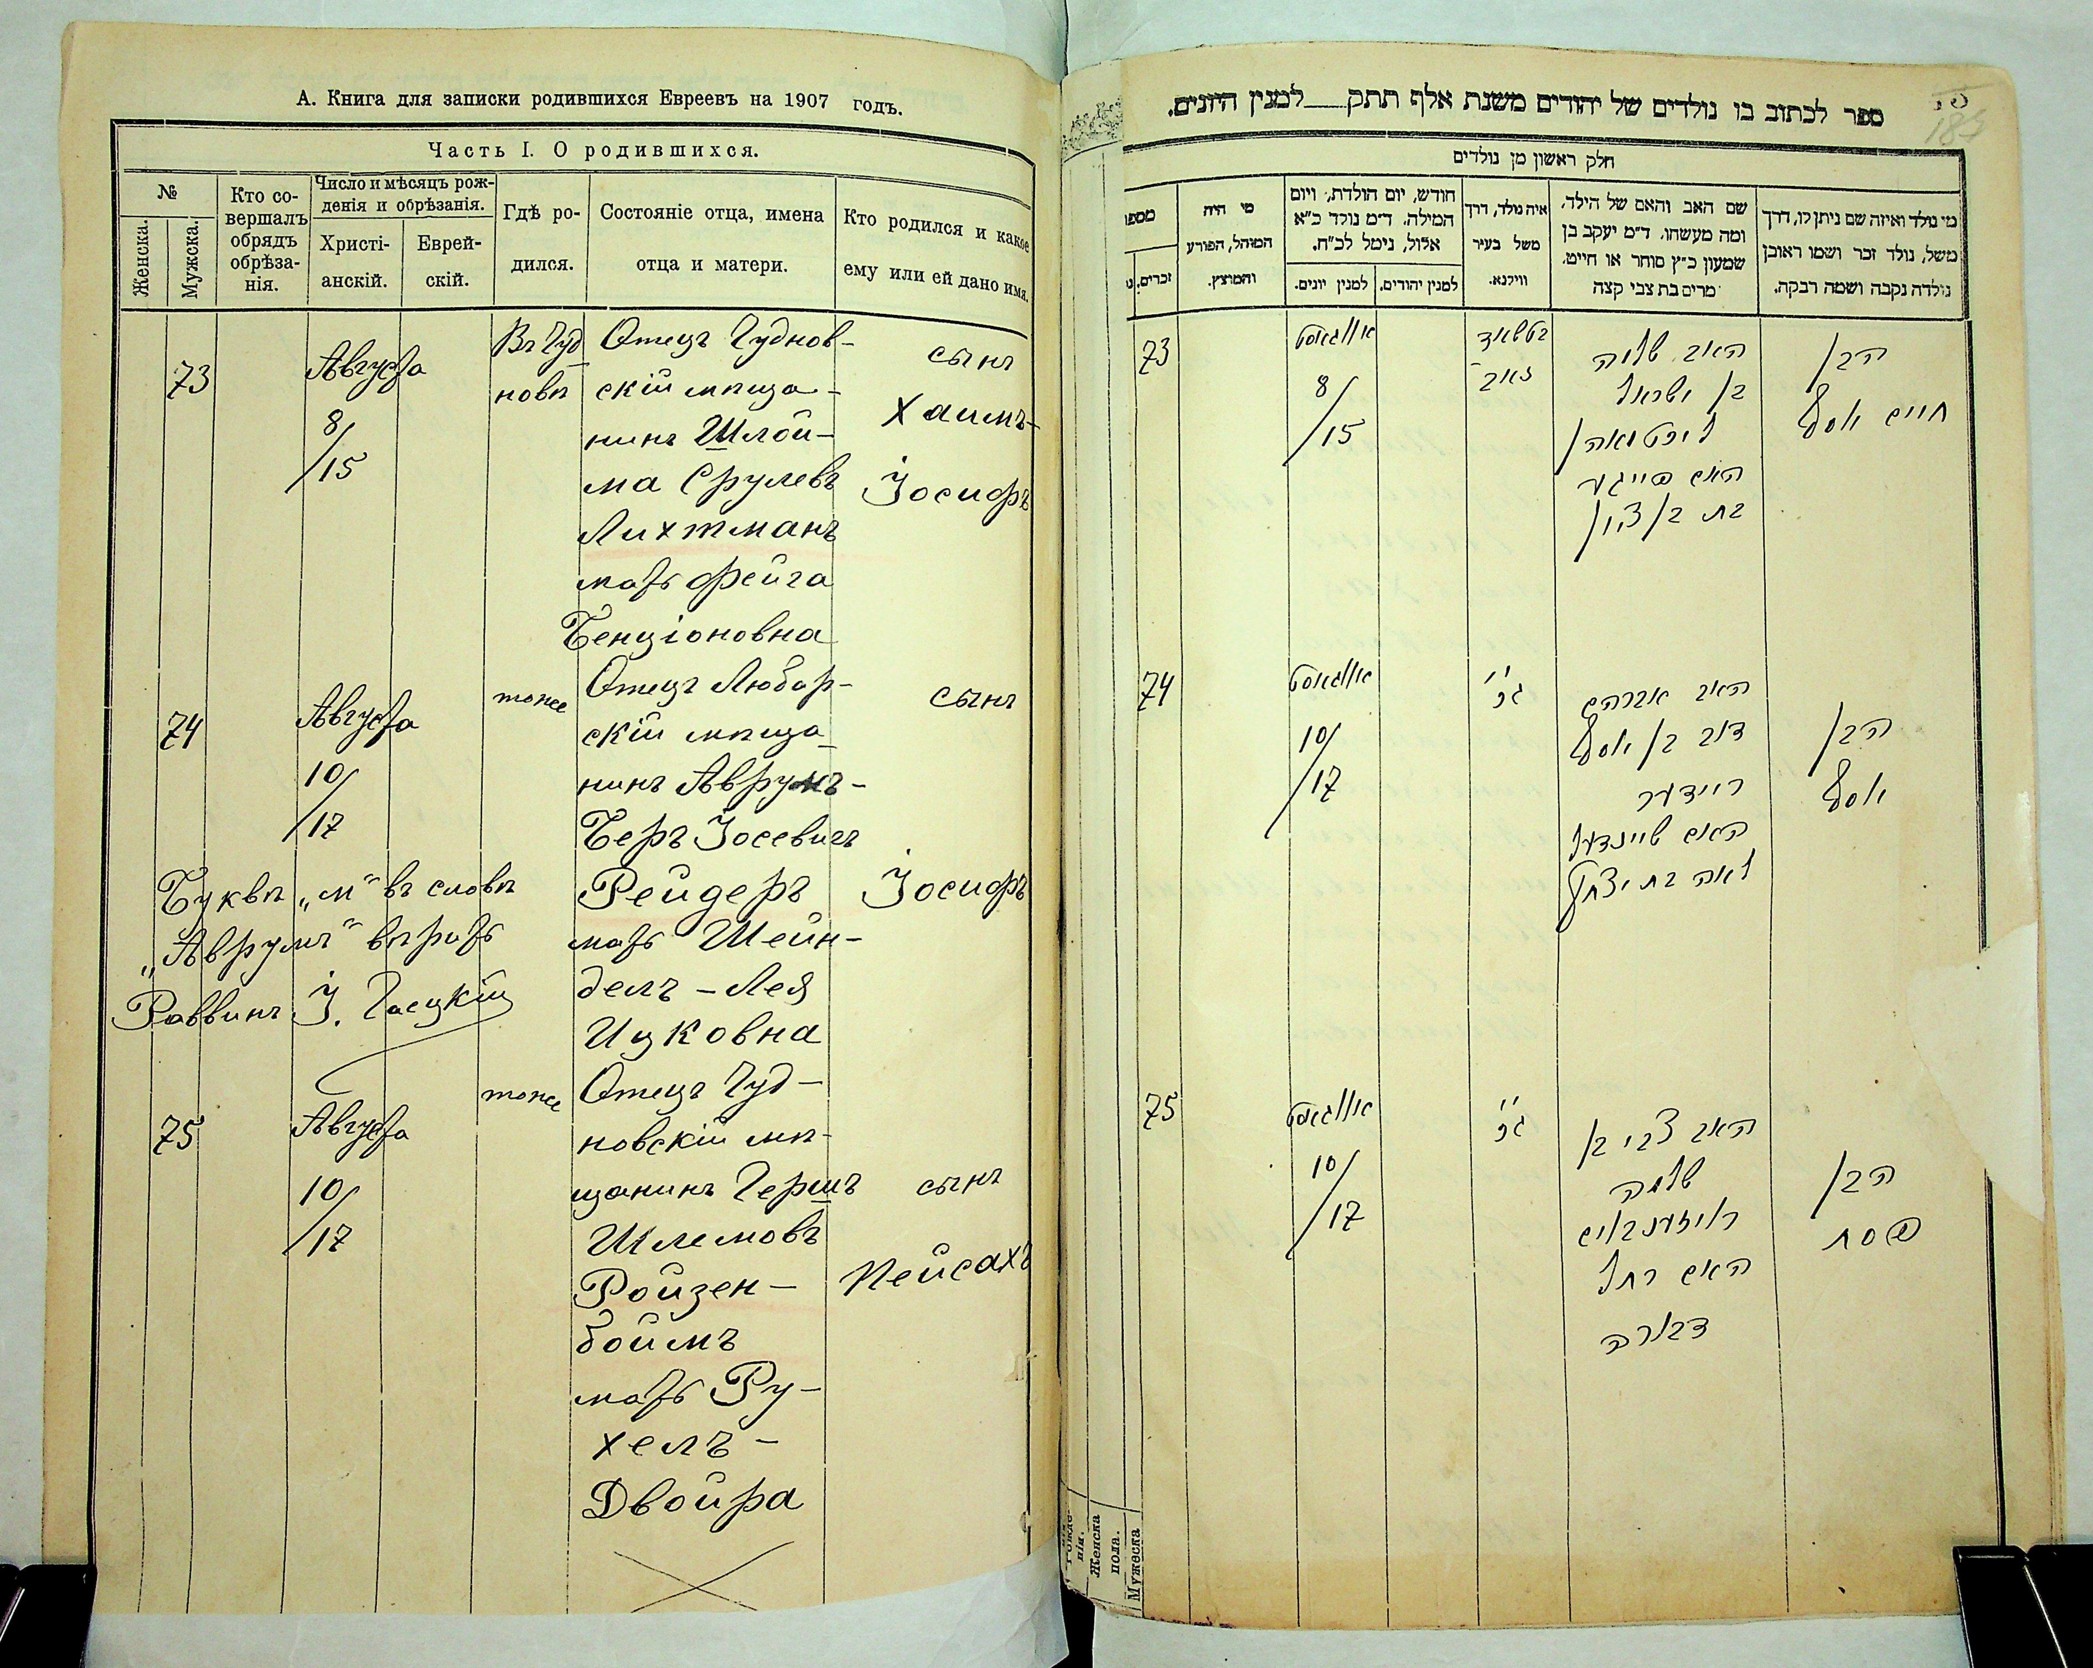 А. Книга для записки родившихся Евреевъ на 1907 годъ.
Часть I. О родившихся.
№
Женска.
Мужска.
Кто со-
вершалъ
обрядъ
обрѣза-
нія.
Число и мѣсяцъ рож-
денія и обрѣзанія.
Христі-
анскій.
Еврей-
скій.
Гдѣ ро-
дился.
Состояніе отца, имена
отца и матери.
Кто родился и какое
ему или ей дано имя.
73
Августа
8/
/15
Въ Чуд
новѣ
Отецъ Чуднов-
скій мѣща-
нинъ Шлой-
ма Срулевъ
Лихтманъ
мать Фейга
Бенціоновна
сынъ
Хаимъ-
Іосифъ
74
Августа
10/
/17
тоже
Отецъ Любар-
скій мѣща-
нинъ Аврумъ-
Беръ Іосевичъ
Рейдеръ
мать Шейн-
делъ-Лея
Ицковна
сынъ
Іосифъ
Буквѣ „м" въ словѣ
„Аврумъ" вѣрить
Раввинъ І.
75
Августа
10/
/17
тоже
Отецъ Чуд-
новскій мѣ-
щанинъ Гершъ
Шлемовъ
Ройзен-
боймъ
мать Ру-
хелъ-
Двойра
сынъ
Пейсахъ
ספר לכתוב בו נולדים של יהודים משנת אלף תתק למנין היונים.
185
חלק ראשון מן נולדים
מי נולד ואיזה שם ניתן לו, דרך
משל, נולד זכר ושמו ראובן
נולדה נקבה ושמה רבקה.
שם האב והאם של הילד,
ומה מעשהו. ד"מ יעקב בן
שמעון כ"ץ סוחר או חייט.
מרים בת צבי קצה
איה נולד, דרך
משל בעיר
ווילנא.
חודש, יום הולדת, ויום
המילה. ד"מ נולד כ"א
אלול, נימל לכ"ח.
למנין יהודים.
למנין יונים.
מי היה
המוהל, הפורע
והמוצץ.
מספר
זכרים.
73
אויגוסט
8/
/15
האב שלמה
בן ישראל
ליכטמאן
האם פייגע
בת בן ציון
הבן
חיים יוסף
74
אויגוסט
10/
/17
האב אברהם
דוב בן יוסף
ריידער
האם שיינדעל
לאה בת יצחק
הבן
יוסף
75
אויגוסט
10/
/17
האב צבי בן
שלמה
רויזענבוים
האם רחל
דבורה
הבן
פסח
нія.
Женска
пола.
Мужеска